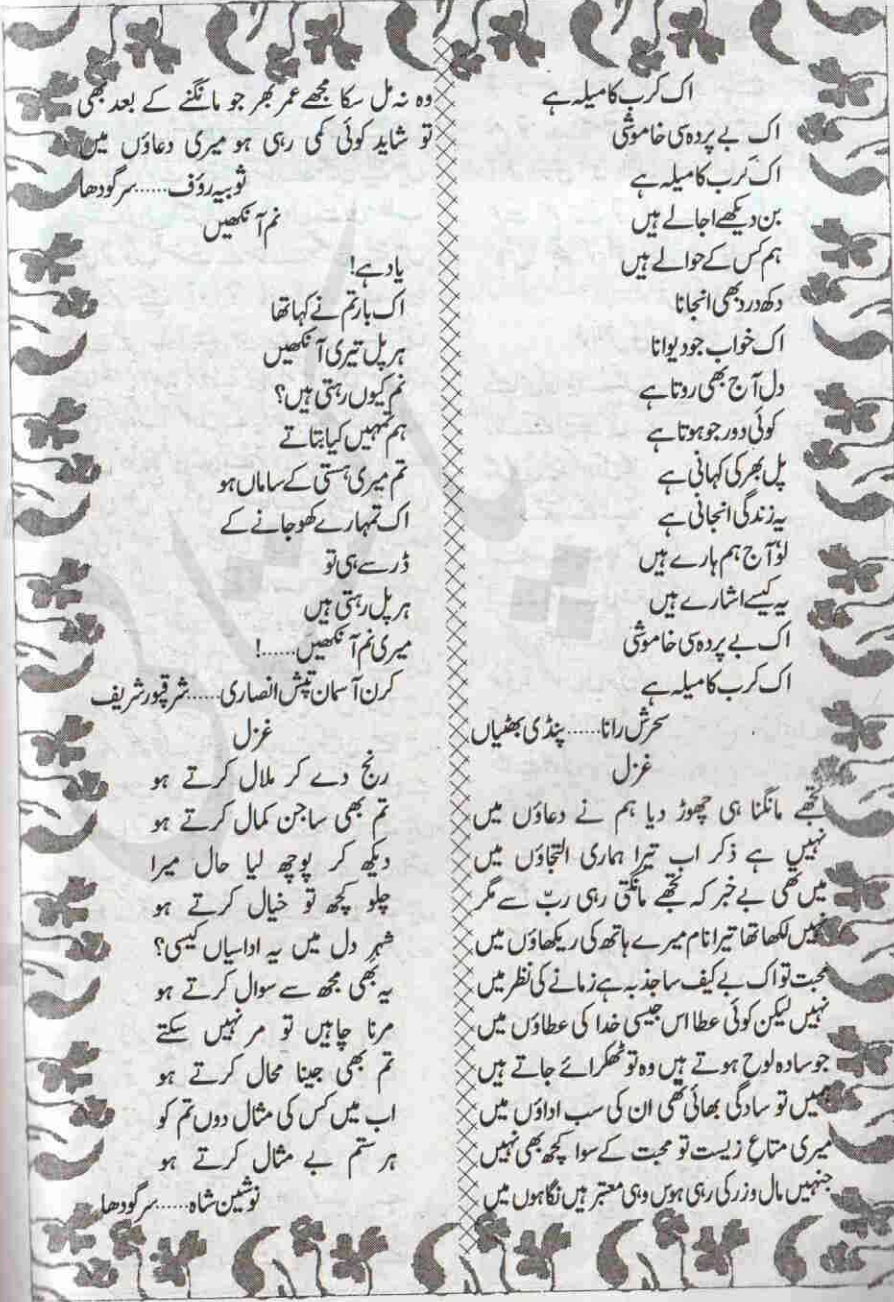 اک کرب کا میلہ ہے
اک بے پردہ سی خاموشی
اک کرب کا میلہ ہے
بن دیکھے اجالے ہیں
ہم کس کے حوالے ہیں
دکھ درد بھی انجانا
اک خواب جو دیوانا
دل آج بھی روتا ہے
کوئی دور جو ہوتا ہے
پل بھر کی کہانی ہے
یہ زندگی انجانی ہے
لوٗ آج ہم ہارے ہیں
یہ کیسے اشارے ہیں
اک بے پردہ سی خاموشی
اک کرب کا میلہ ہے
سحرش رانا...... پنڈی بھٹیاں
غزل
تجھے مانگنا ہی چھوڑ دیا ہم نے دعاؤں میں
نہیں ہے ذکر اب تیرا ہماری التجاؤں میں
میں تھی بے خبر کہ تجھے مانگتی رہی ربّ سے مگر
نہیں لکھا تھا تیرا نام میرے ہاتھ کی ریکھاؤں میں
محبت تو اک بے کیف سا جذبہ ہے زمانے کی نظر میں
نہیں لیکن کوئی عطا اس جیسی خدا کی عطاؤں میں
جو سادہ لوح ہوتے ہیں وہ تو ٹھکرائے جاتے ہیں
ہمیں تو سادگی بھائی تھی ان کی سب اداؤں میں
میری متاعِ زیست تو محبت کے سوا کچھ بھی نہیں
جنہیں مال و زر کی رہی ہوس وہی معتبر ہیں نگاہوں میں
وہ نہ مل سکا مجھے عمر بھر جو مانگنے کے بعد بھی
تو شاید کوئی کمی رہی ہو میری دعاؤں میں
ثوبیہ رؤف...... سرگودھا
نم آنکھیں
یاد ہے!
اک بار تم نے کہا تھا
ہر پل تیری آنکھیں
نم کیوں رہتی ہیں؟
ہم تمہیں کیا بتاتے
تم میری ہستی کے ساماں ہو
اک تمہارے کھو جانے کے
ڈر سے ہی تو
ہر پل رہتی ہیں
میری نم آنکھیں......!
کرن آسمان تپش انصاری...... شرقپور شریف
غزل
رنج دے کر ملال کرتے ہو
تم بھی ساجن کمال کرتے ہو
دیکھ کر پوچھ لیا حال میرا
چلو کچھ تو خیال کرتے ہو
شہرِ دل میں یہ اداسیاں کیسی؟
یہ بھی مجھ سے سوال کرتے ہو
مرنا چاہیں تو مر نہیں سکتے
تم بھی جینا محال کرتے ہو
اب میں کس کی مثال دوں تم کو
ہر ستم بے مثال کرتے ہو
نوشین شاہ...... سرگودھا